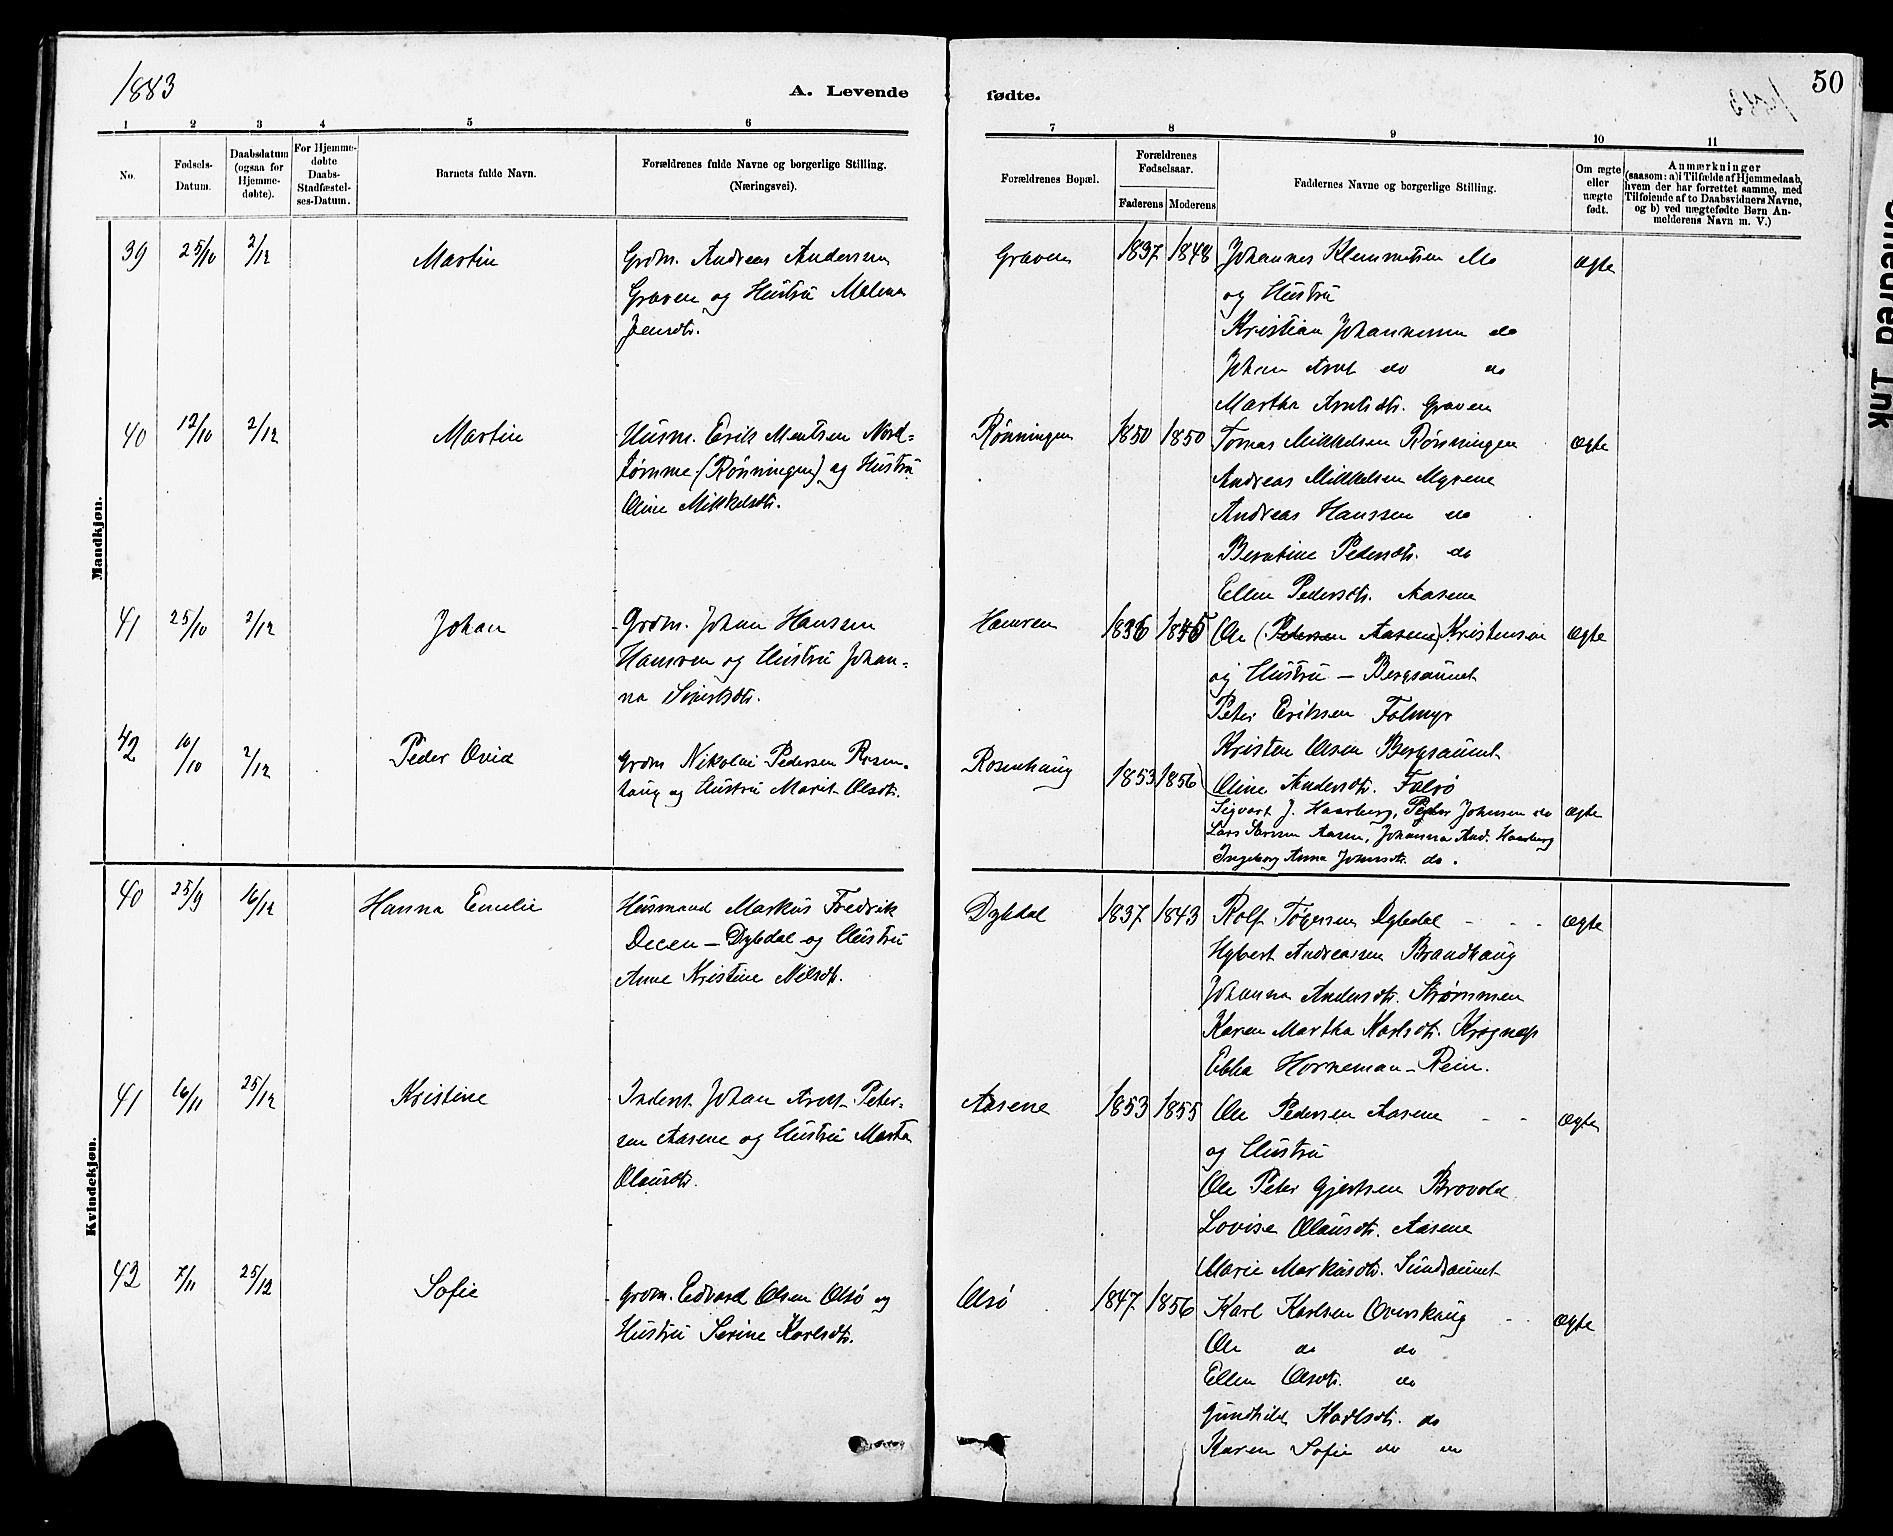 1883
A. Levende fødte.
50
1 2 3 4 5 6 7 8 9 10 11
No.
Fødsels-Datum.
Daabsdatum (ogsaa for Hjemme-døbte).
For Hjemme-døbte Daabs-Stadfæstel-ses-Datum.
Barnets fulde Navn.
Forældrenes fulde Navne og borgerlige Stilling. (Næringsvei).
Forældrenes Bopæl.
Forældrenes Fødselsaar.
Faderens Moderens
Faddernes Navne og borgerlige Stilling.
Om ægte eller nægte født.
Anmærkninger
(saasom: a) i Tilfælde af Hjemmedaab,
hvem der har forrettet samme, med
Tilføiende af to Daabsvidners Navne,
og b) ved nægtefødte Børn An-
melderens Navn m. V.)
Mandkjøn.
39 25/10 2/12 Martin
Grdm. Andreas Andersen
Graven og Hustru Malena
Jensdtr.
Graven 1837 1848
Johannes Klemmetsen Mo
og Hustru
Kristian Johannesen do
Johan Arnt do do
Martha Arntsdtr. Graven
ægte
40 12/10 2/12 Martin
Husm. Erik Mentsen Nord-
tømme (Rønningen) og Hustru
Oline Mikkelsdtr.
Rønningen 1850 1850
Tomas Mikkelsen Rønningen
Andreas Mikkelsen Myrene
Andreas Hanssen do
Beratine Pedersdtr. do
Ellen Pedersdtr. Aasene
ægte
41 25/10 2/12 Johan
Grdm. Johan Hansen
Hamven og Hustru Johan-
na Sivertsdtr.
1836 1845
Ole (Pedersen Aasene) Kristensen
og Hustru — Bergsaunet
Peter Eriksen Folmyr
Kristen Olsen Bergsaunet
Oline Andersdtr.
ægte
42 10/10 2/12 Peder Ovid
Grdm Nikolai Pedersen Rosen-
haug og Hustru Marit Olsdtr.
Rosenhaug 1853 1856
Sigvart J. Haarberg, Peder Johnsen do
Lars Larsen Aasen, Johanna And. Haarberg
Ingeborg Anna Johnsdtr. do.
ægte
Kvindekjøn.
40 25/9 16/12 Hanna Emelie
Husmand Markus Fredrik
Decen – Dybdal og Hustru
Anne Kristine Nilsdtr.
Dybdal 1837 1843
Rolf Tøgersen Dybdal
Hybert Andreassen Brandhaug
Johanna Andersdtr. Strømmen
Karen Martha Karlsdtr. Krognæs
Ebba Horneman – Rein.
ægte
41 16/11 25/12 Kristine
Inderst Johan Arnt Peter-
sen Aasene og Hustru Marta
Olausdtr.
Aasene 1853 1855
Ole Pedersen Aasene
og Hustru
Ole Peter Gjertsen Brovold
Lovise Olausdtr. Aasene
Marie Markusdtr. Sundsaunet
ægte
42 7/11 25/12 Sofie
Grdm. Edvard Olsen Olsø og
Hustru Serine Karlsdtr.
Olsø 1847 1856
Karl Karlsen Overskaug
Ole do do
Ellen Olsdtr. do
Gunhild Karlsdtr. do
Karen Sofie do do
ægte
Smeared Ink